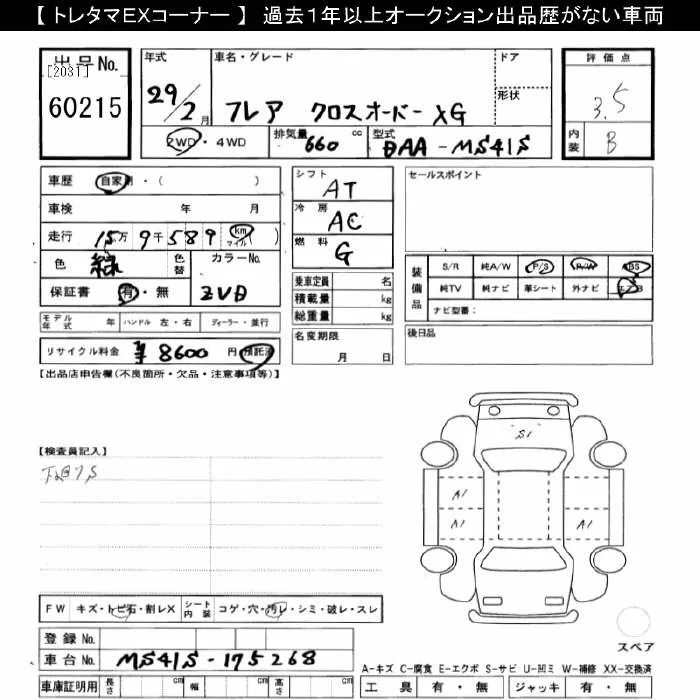 【 トレタマEXコーナー 】 過去1年以上オークション出品歴がない車両
出品No.
[2031]
60215
年式
29/2月
車名・グレード
フレア クロスオーバー XG
ドア
形状
2WD・4WD
排気量
660
cc
型式
DAA-MS41S
評価点
3.5
内装
B
車歴 自家用・( )
車検 年 月
走行 15万9千589 km マイル( )
色 緑
色替
カラーNo.
ZVD
保証書 有・無
モデル年式 年 ハンドル 左・右 ディーラー・並行
リサイクル料金 ¥8600 円 預託済
シフト
AT
冷房
AC
燃料
G
乗車定員 名
積載量 kg
総重量 kg
名変期限
月 日
セールスポイント
装備品
S/R 純A/W P/S R/W ABS
純TV 純ナビ 革シート 外ナビ エアB
ナビ型番:
後日品
【出品店申告欄(不良箇所・欠品・注意事項等)】
【検査員記入】
S1
A1
A1 A1
FW キズ・トビ石・割レX
シート内装 コゲ・穴・汚レ・シミ・破レ・スレ
登録No.
車台No. MS41S-175268
車庫証明用 長さ cm 幅 cm 高さ cm
スペア
A-キズ C-腐食 E-エクボ S-サビ U-凹ミ W-補修 XX-交換済
工具 有・無 ジャッキ 有・無